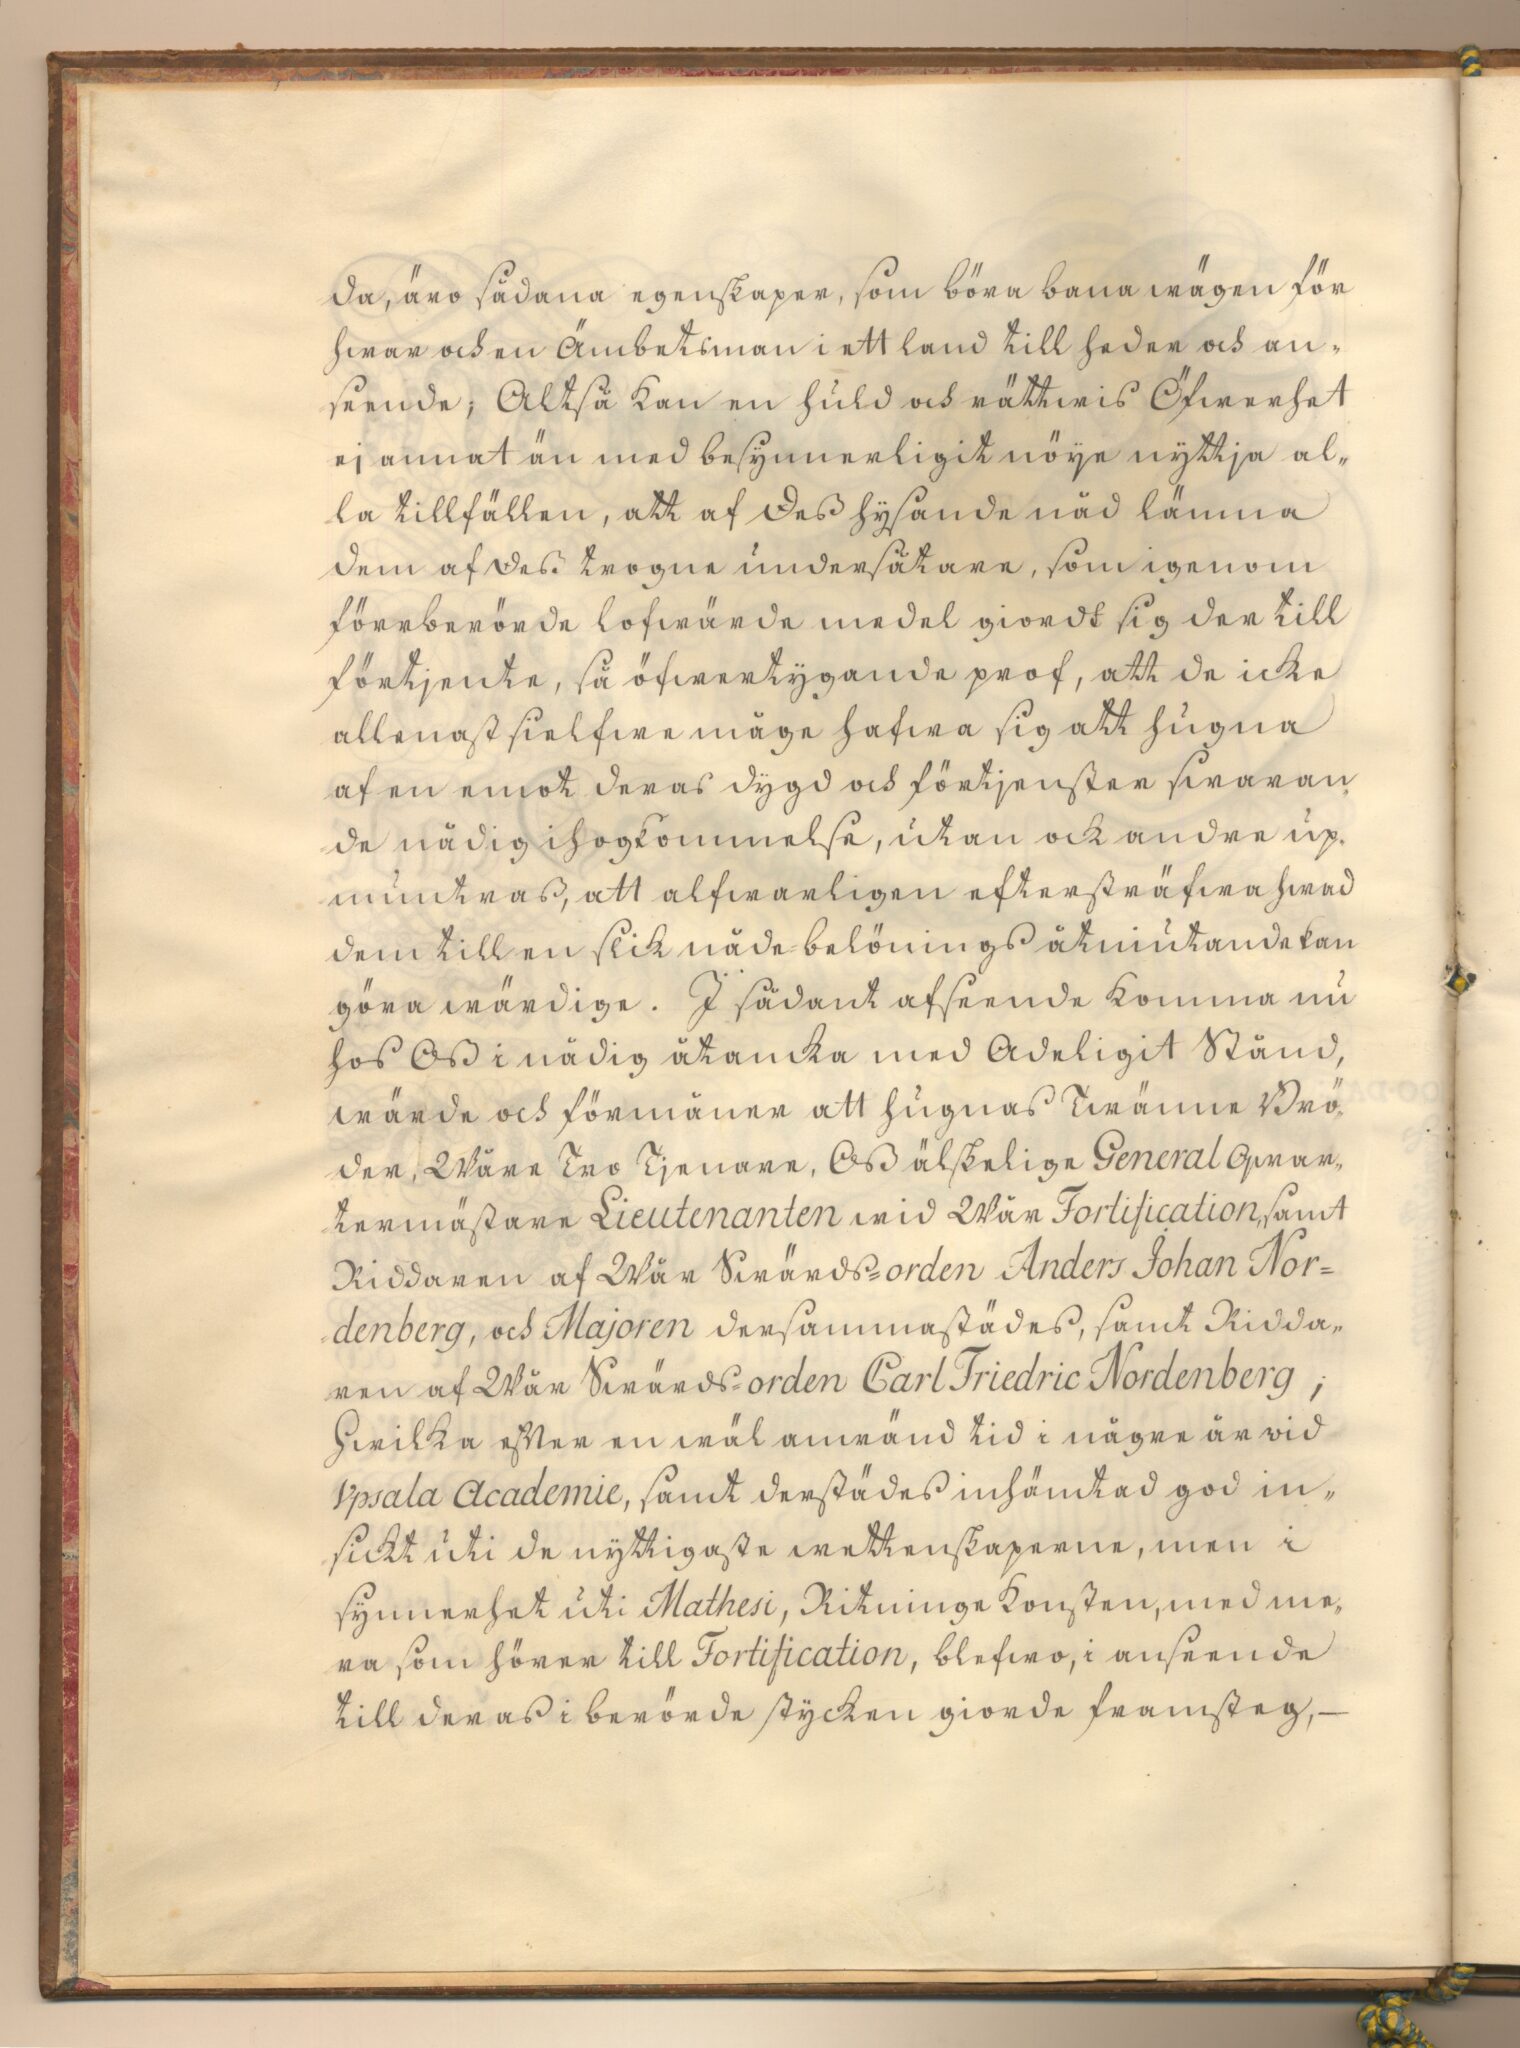 da, äro sådana egenskaper, som böra bana wägen för
hwar och en Ämbetsman i ett land till heder och an„
seende; Altså kan en huld och rättwis Öfwerhet
ej annat än med besynnerligit nöye nyttja al„
la tillfällen, att af Deß hysande nåd lämna
dem af Deß trogne undersåtare, som igenom
förrberörde lofwärde medel giordt sig der till
förtjente, så öfwertygande prof, att de icke
allenast sielfwe måge hafwa sig att hugna
af en emot deras dygd och förtjenster swaran„
de nådig ihogkommelse, utan ock andre up„
muntras, att alfwarligen eftersträfwa hwad
dem till en slik nåde-belönings åtniutande kan
göra wärdige. I sådant afseende komma nu
hos Oß i nådig åtancka med Adeligit Stånd,
wärde och förmåner att hugnas Twänne Brö„
der, Wåre Tro Tjenare, Oß älskelige General Qvar„
termästare Lieutenanten wid Wår Fortification, samt
Riddaren af Wår Swärds=orden Anders Johan Nor=
denberg, och Majoren dersammastädes, samt Ridda„
ren af Wår Swärds=orden Carl Friedric Nordenberg;
Hwilka efter en wäl anwänd tid i någre år vid
Upsala Academie, samt derstädes inhämtad god in„
sickt uti de nyttigaste wettenskaperne, men i
synnerhet uti Mathesi, Ritninge Konsten, med me„
ra som hörer till Fortification, blefwo, i anseende
till deras i berörde stycken giorde framsteg, —